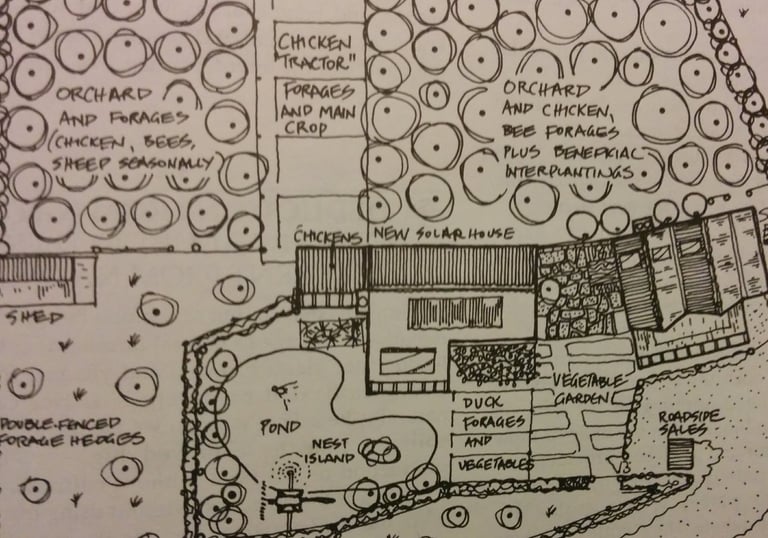 "CHICKEN
TRACTOR"
FORAGES
AND MAIN
CROP
ORCHARD
AND FORAGES
(CHICKEN, BEES,
SHEEP SEASONALLY)
ORCHARD
AND CHICKEN,
BEE FORAGES
PLUS BENEFICIAL
INTERPLANTINGS
CHICKENS
NEW SOLAR HOUSE
SHED
DOUBLE-FENCED
FORAGE HEDGES
POND
NEST
ISLAND
DUCK
FORAGES
AND
VEGETABLES
VEGETABLE
GARDEN
ROADSIDE
SALES